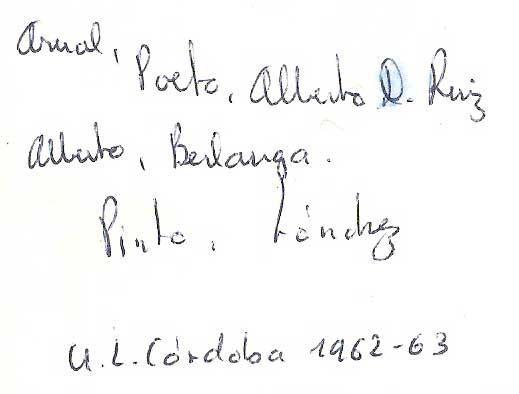 Arual, Poeto, Alberto D. Ruiz
Alberto, Berlanga.
Pinto, Sánchez
U.L. Córdoba 1962-63